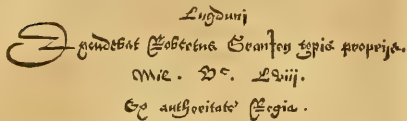 Lugduni
Excudebat Robertus Granjon typis proprijs.
Mil. Vᶜ. Lviij.
Ex authoritate Regia.